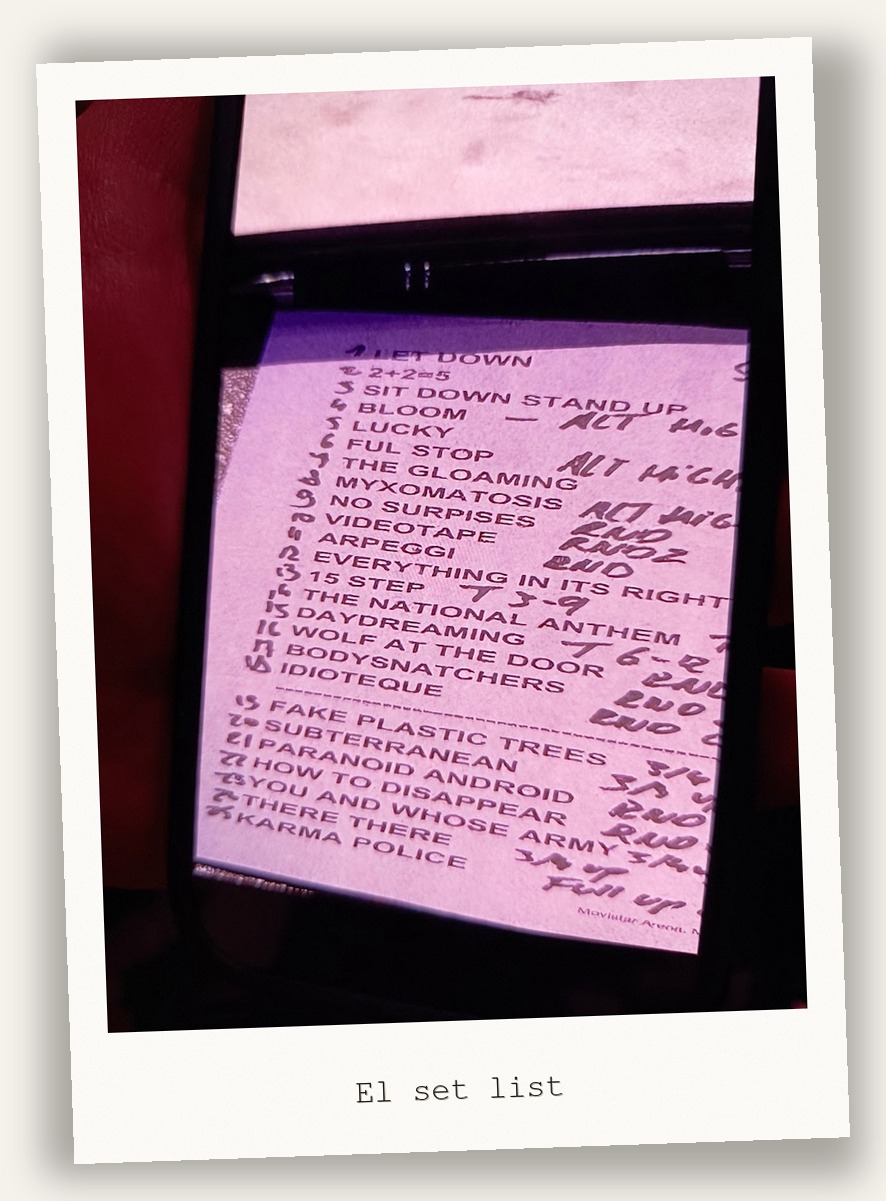 1 LET DOWN
2 2+2=5
3 SIT DOWN STAND UP
4 BLOOM — ALT HIG
5 LUCKY
6 FUL STOP ALT HIGH
7 THE GLOAMING
8 MYXOMATOSIS ALT HIG
9 NO SURPISES RND
10 VIDEOTAPE RND2
11 ARPEGGI RND
12 EVERYTHING IN ITS RIGHT
13 15 STEP T 3-9
14 THE NATIONAL ANTHEM T
15 DAYDREAMING T 6-12
16 WOLF AT THE DOOR RND
17 BODYSNATCHERS RND
18 IDIOTEQUE RND
19 FAKE PLASTIC TREES
20 SUBTERRANEAN 3/4
21 PARANOID ANDROID 3/4
22 HOW TO DISAPPEAR RND
23 YOU AND WHOSE ARMY RND
24 THERE THERE 3/4 UP
25 KARMA POLICE FULL UP
Movistar Arena,
El set list